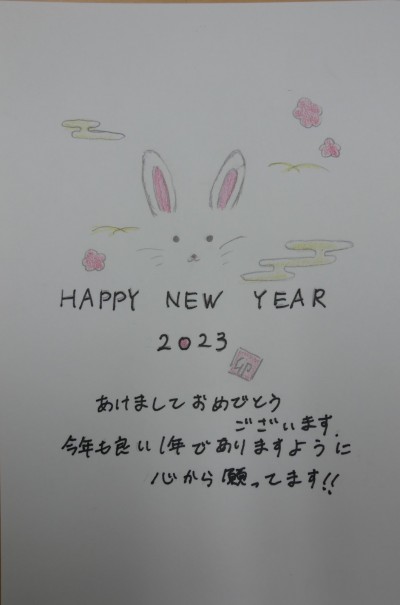 HAPPY NEW YEAR
2023
卯
あけましておめでとう
ございます.
今年も良い1年でありますように
心から願ってます!!